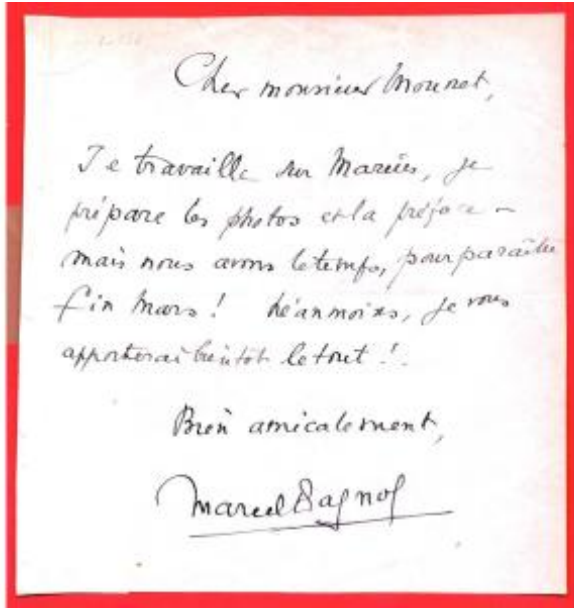 Cher monsieur Mounet,
Je travaille sur Marius, je
prépare les photos et la préface –
mais nous avons le temps, pour paraître
fin Mars ! Néanmoins, je vous
apporterai bientôt le tout !
Bien amicalement,
Marcel Pagnol